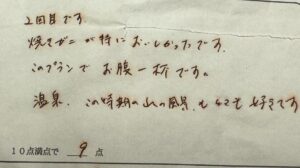 2回目です
焼きガニが特においしかったです。
このプランでお腹一杯です。
温泉、この時期の山の風景、もとても好きです
10点満点で 9 点